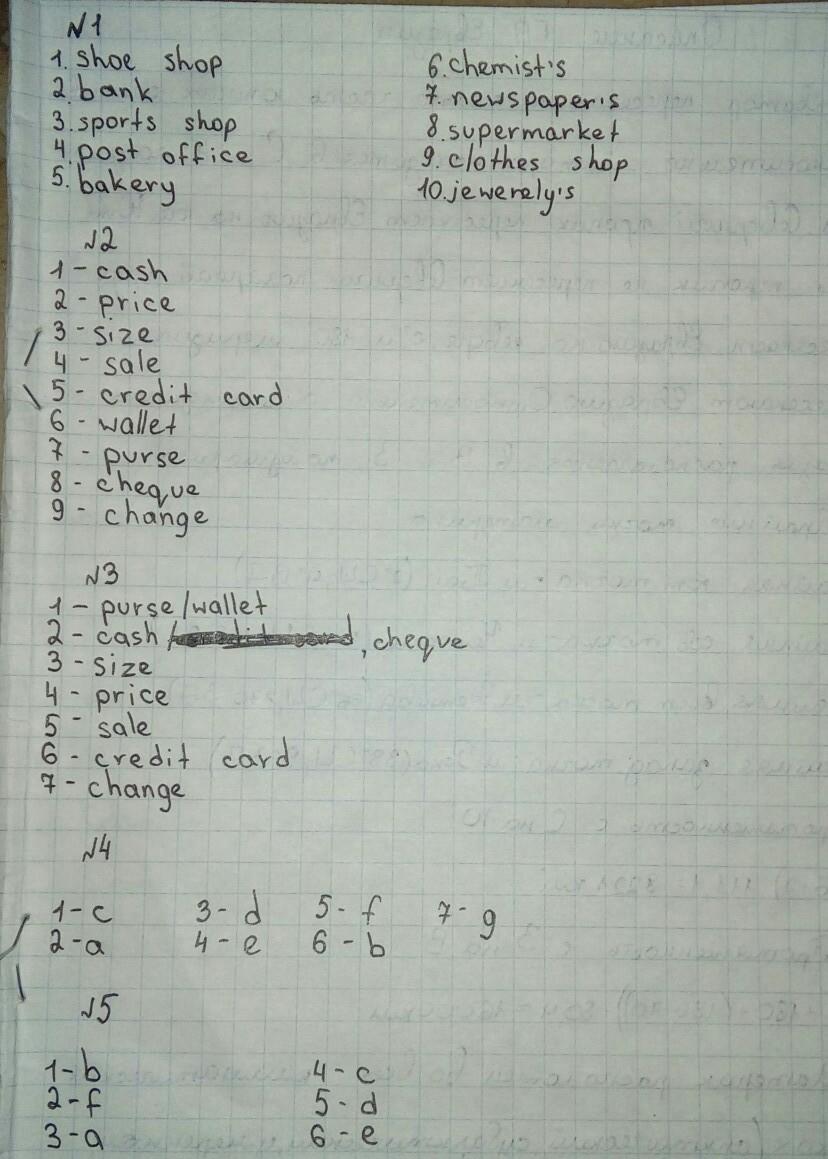 №1
1. shoe shop
2. bank
3. sports shop
4. post office
5. bakery
6. chemist's
7. newspaper's
8. supermarket
9. clothes shop
10. jewerely's
№2
1 - cash
2 - price
3 - size
4 - sale
5 - credit card
6 - wallet
7 - purse
8 - cheque
9 - change
№3
1 - purse/wallet
2 - cash , cheque
3 - size
4 - price
5 - sale
6 - credit card
7 - change
№4
1 - c 3 - d 5 - f 7 - g
2 - a 4 - e 6 - b
№5
1 - b 4 - c
2 - f 5 - d
3 - a 6 - e